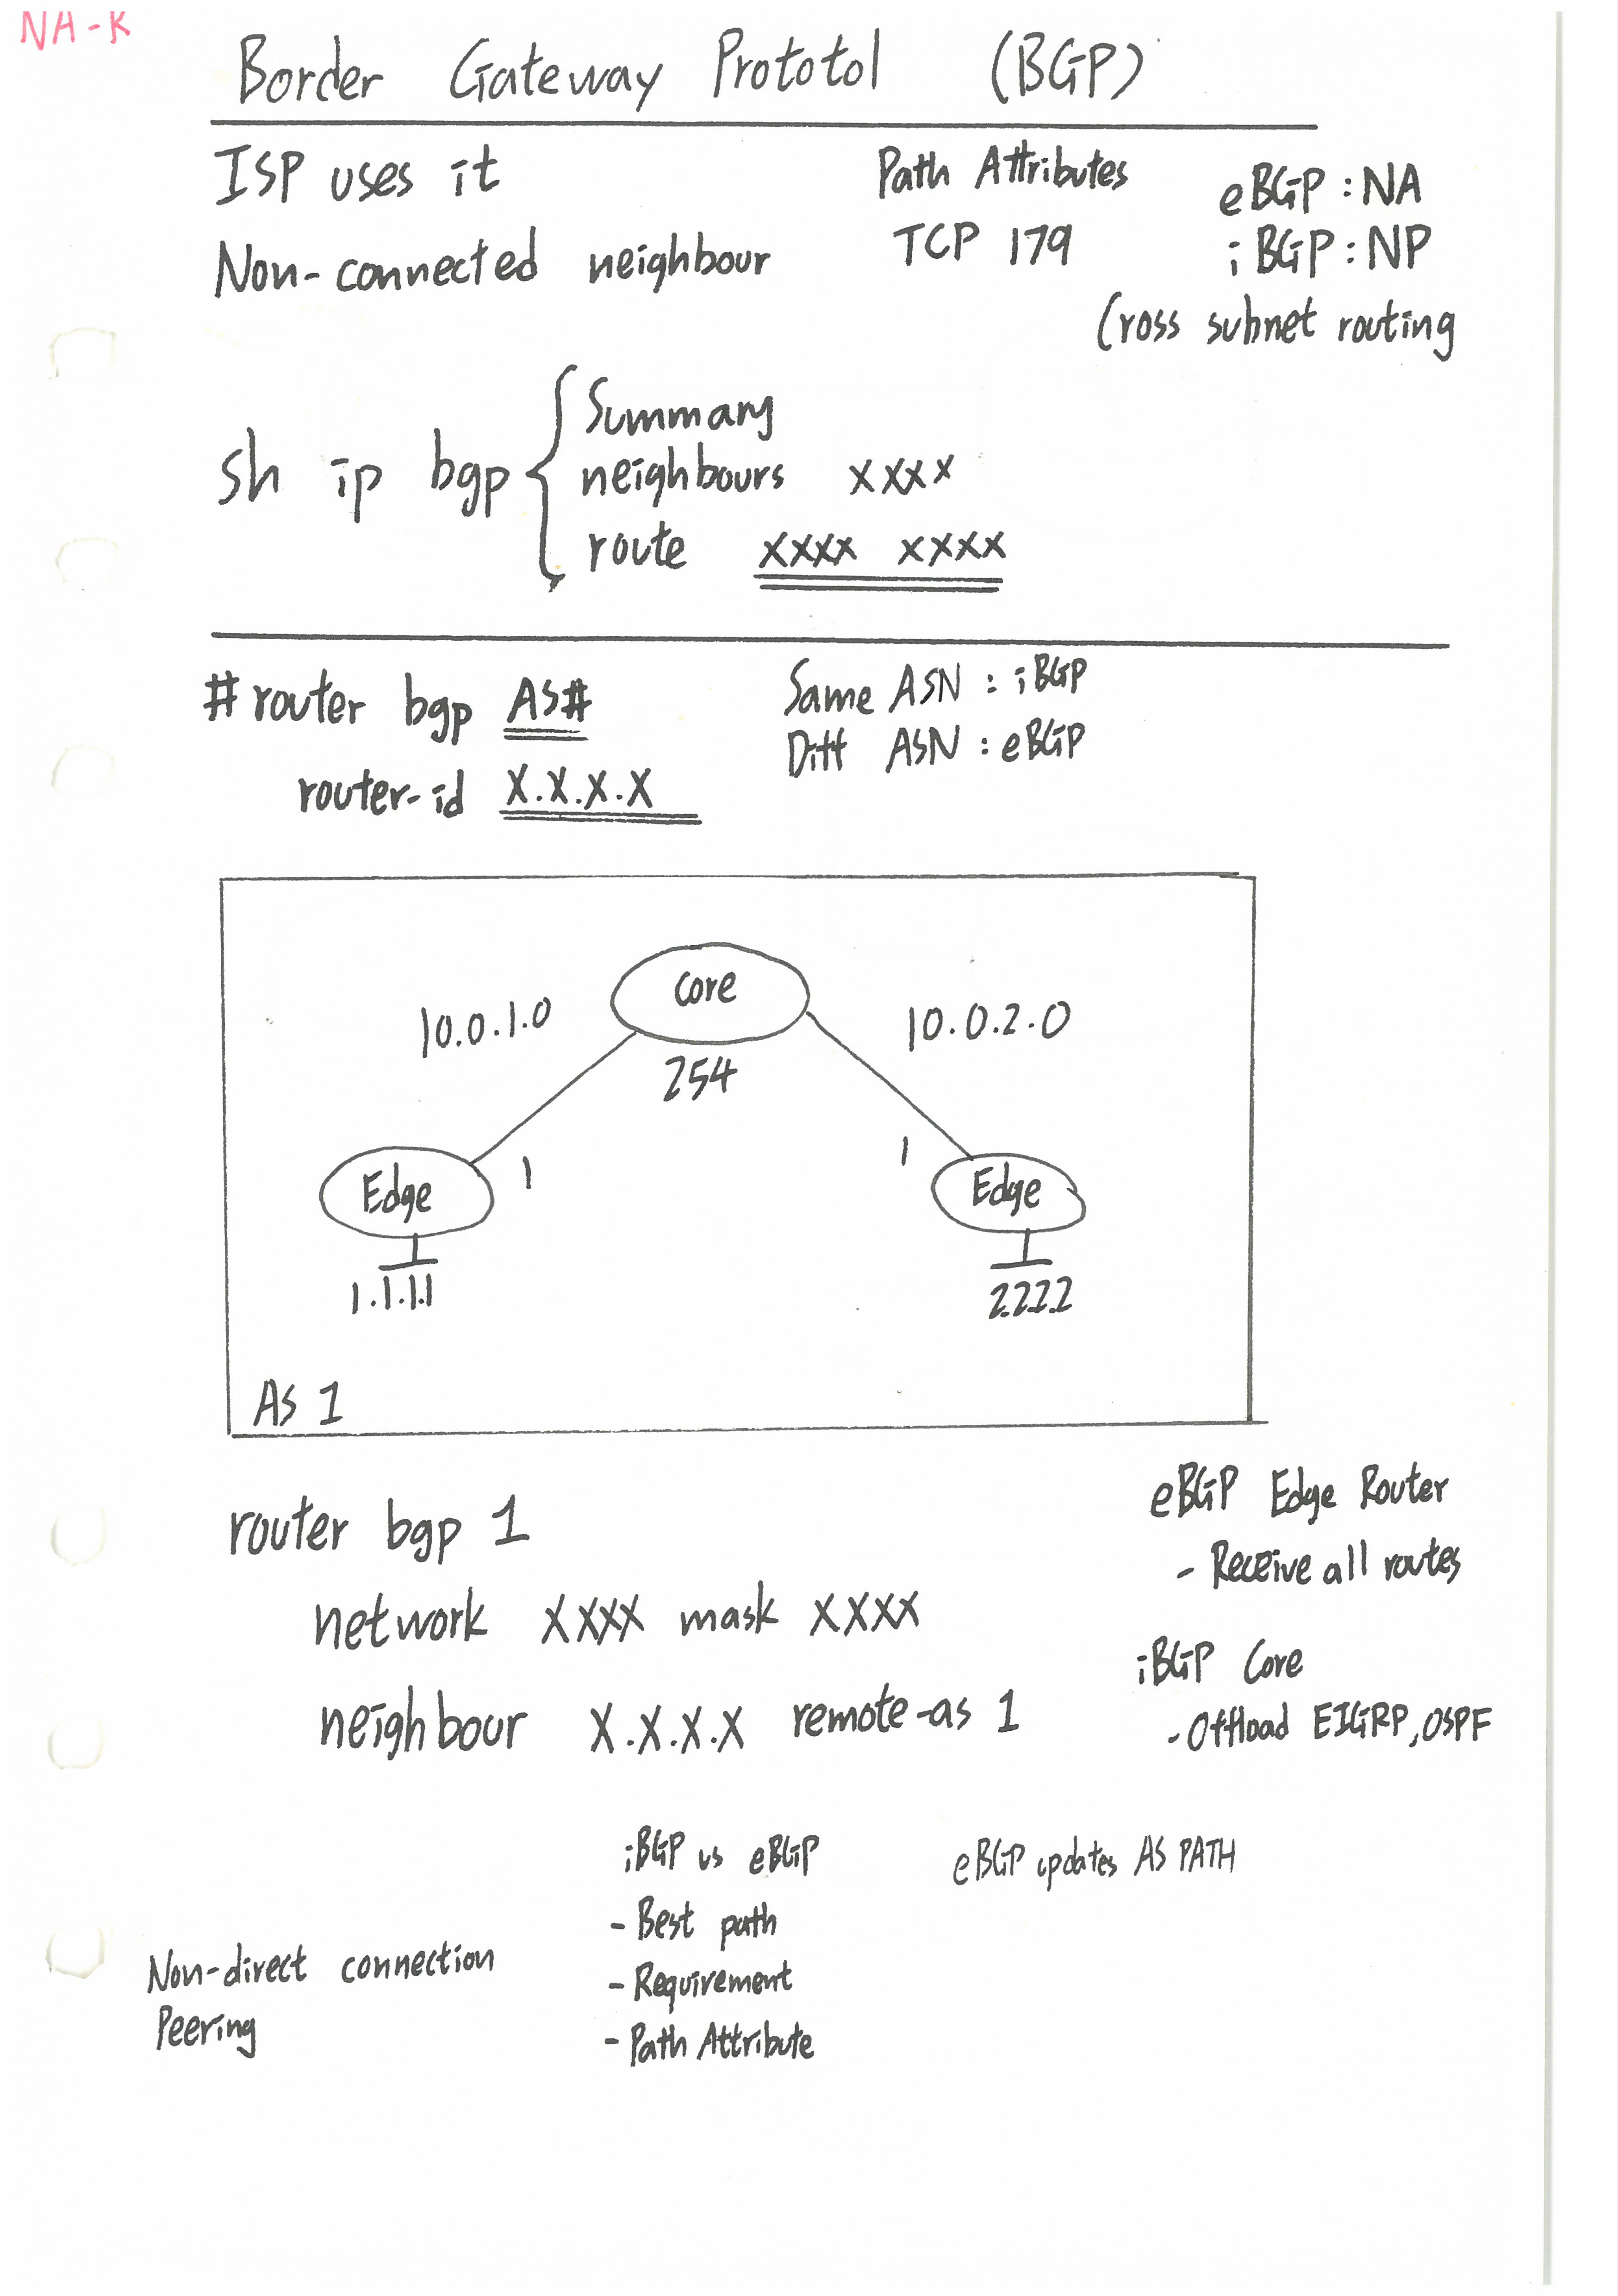 NA-K
Border Gateway Prototol (BGP)
ISP uses it
Non-connected neighbour
Path Attributes
TCP 179
eBGP : NA
iBGP : NP
Cross subnet routing
sh ip bgp
Summary
neighbours xxxx
route xxxx xxxx
# router bgp AS#
router-id X.X.X.X
Same ASN : iBGP
Diff ASN : eBGP
Core
10.0.1.0
10.0.2.0
254
1
1
Edge
Edge
1.1.1.1
2.2.2.2
AS 1
router bgp 1
network XXXX mask XXXX
neighbour X.X.X.X remote-as 1
eBGP Edge Router
- Receive all routes
iBGP Core
- Offload EIGRP, OSPF
iBGP vs eBGP
- Best path
- Requirement
- Path Attribute
eBGP updates AS PATH
Non-direct connection
Peering